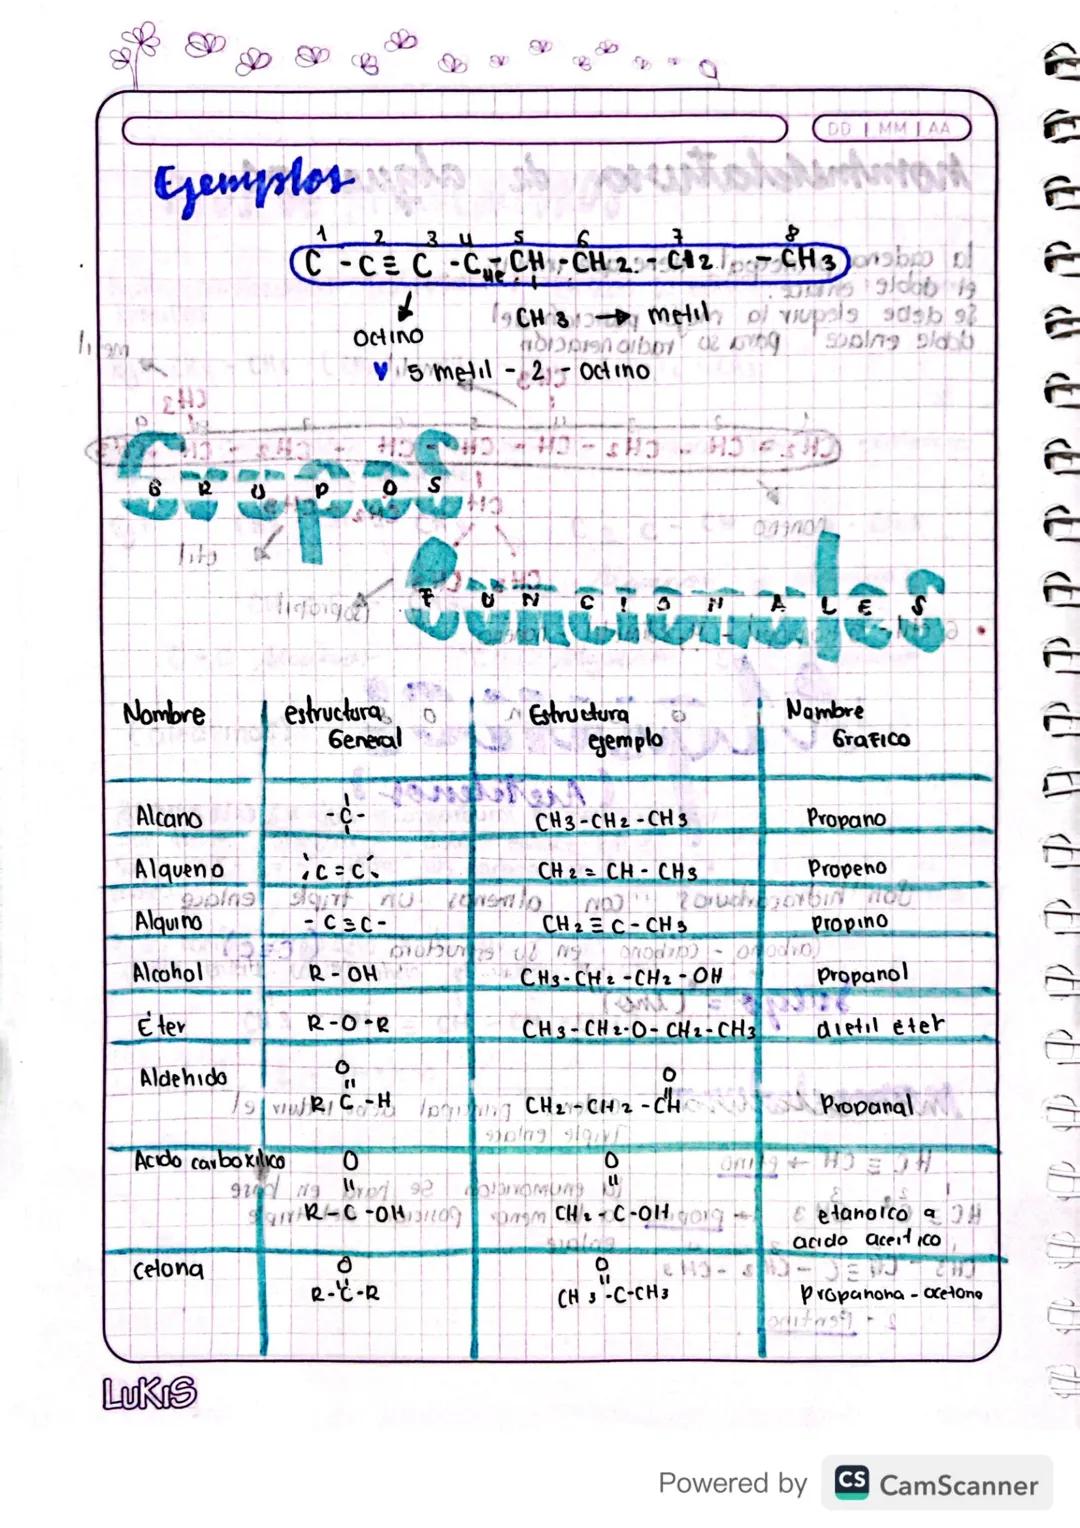 DD | MM | AA
Ejemplos
1 2 3 4 5 6 7 8
C - C ≡ C - CH2 - CH - CH2 - CH2 - CH3
octino
CH3 → metil
♥ 5 metil - 2 - octino
Grupos
G R U P O S
Funcionales
F U N C I O N A L E S
Nombre estructura General Estructura ejemplo Nombre Grafico
Alcano -C- CH3-CH2-CH3 Propano
Alqueno C=C CH2=CH-CH3 Propeno
Alquino -C≡C- CH2≡C-CH3 propino
Alcohol R-OH CH3-CH2-CH2-OH propanol
Éter R-O-R CH3-CH2-O-CH2-CH3 dietil éter
O O
Aldehido R C-H CH2-CH2-CH Propanal
Acido carboxilico O O
R-C-OH CH2-C-OH etanoico a
acido aceitico
cetona O O
R-C-R CH3-C-CH3 Propanona-acetona
LUKIS
Powered by CS CamScanner